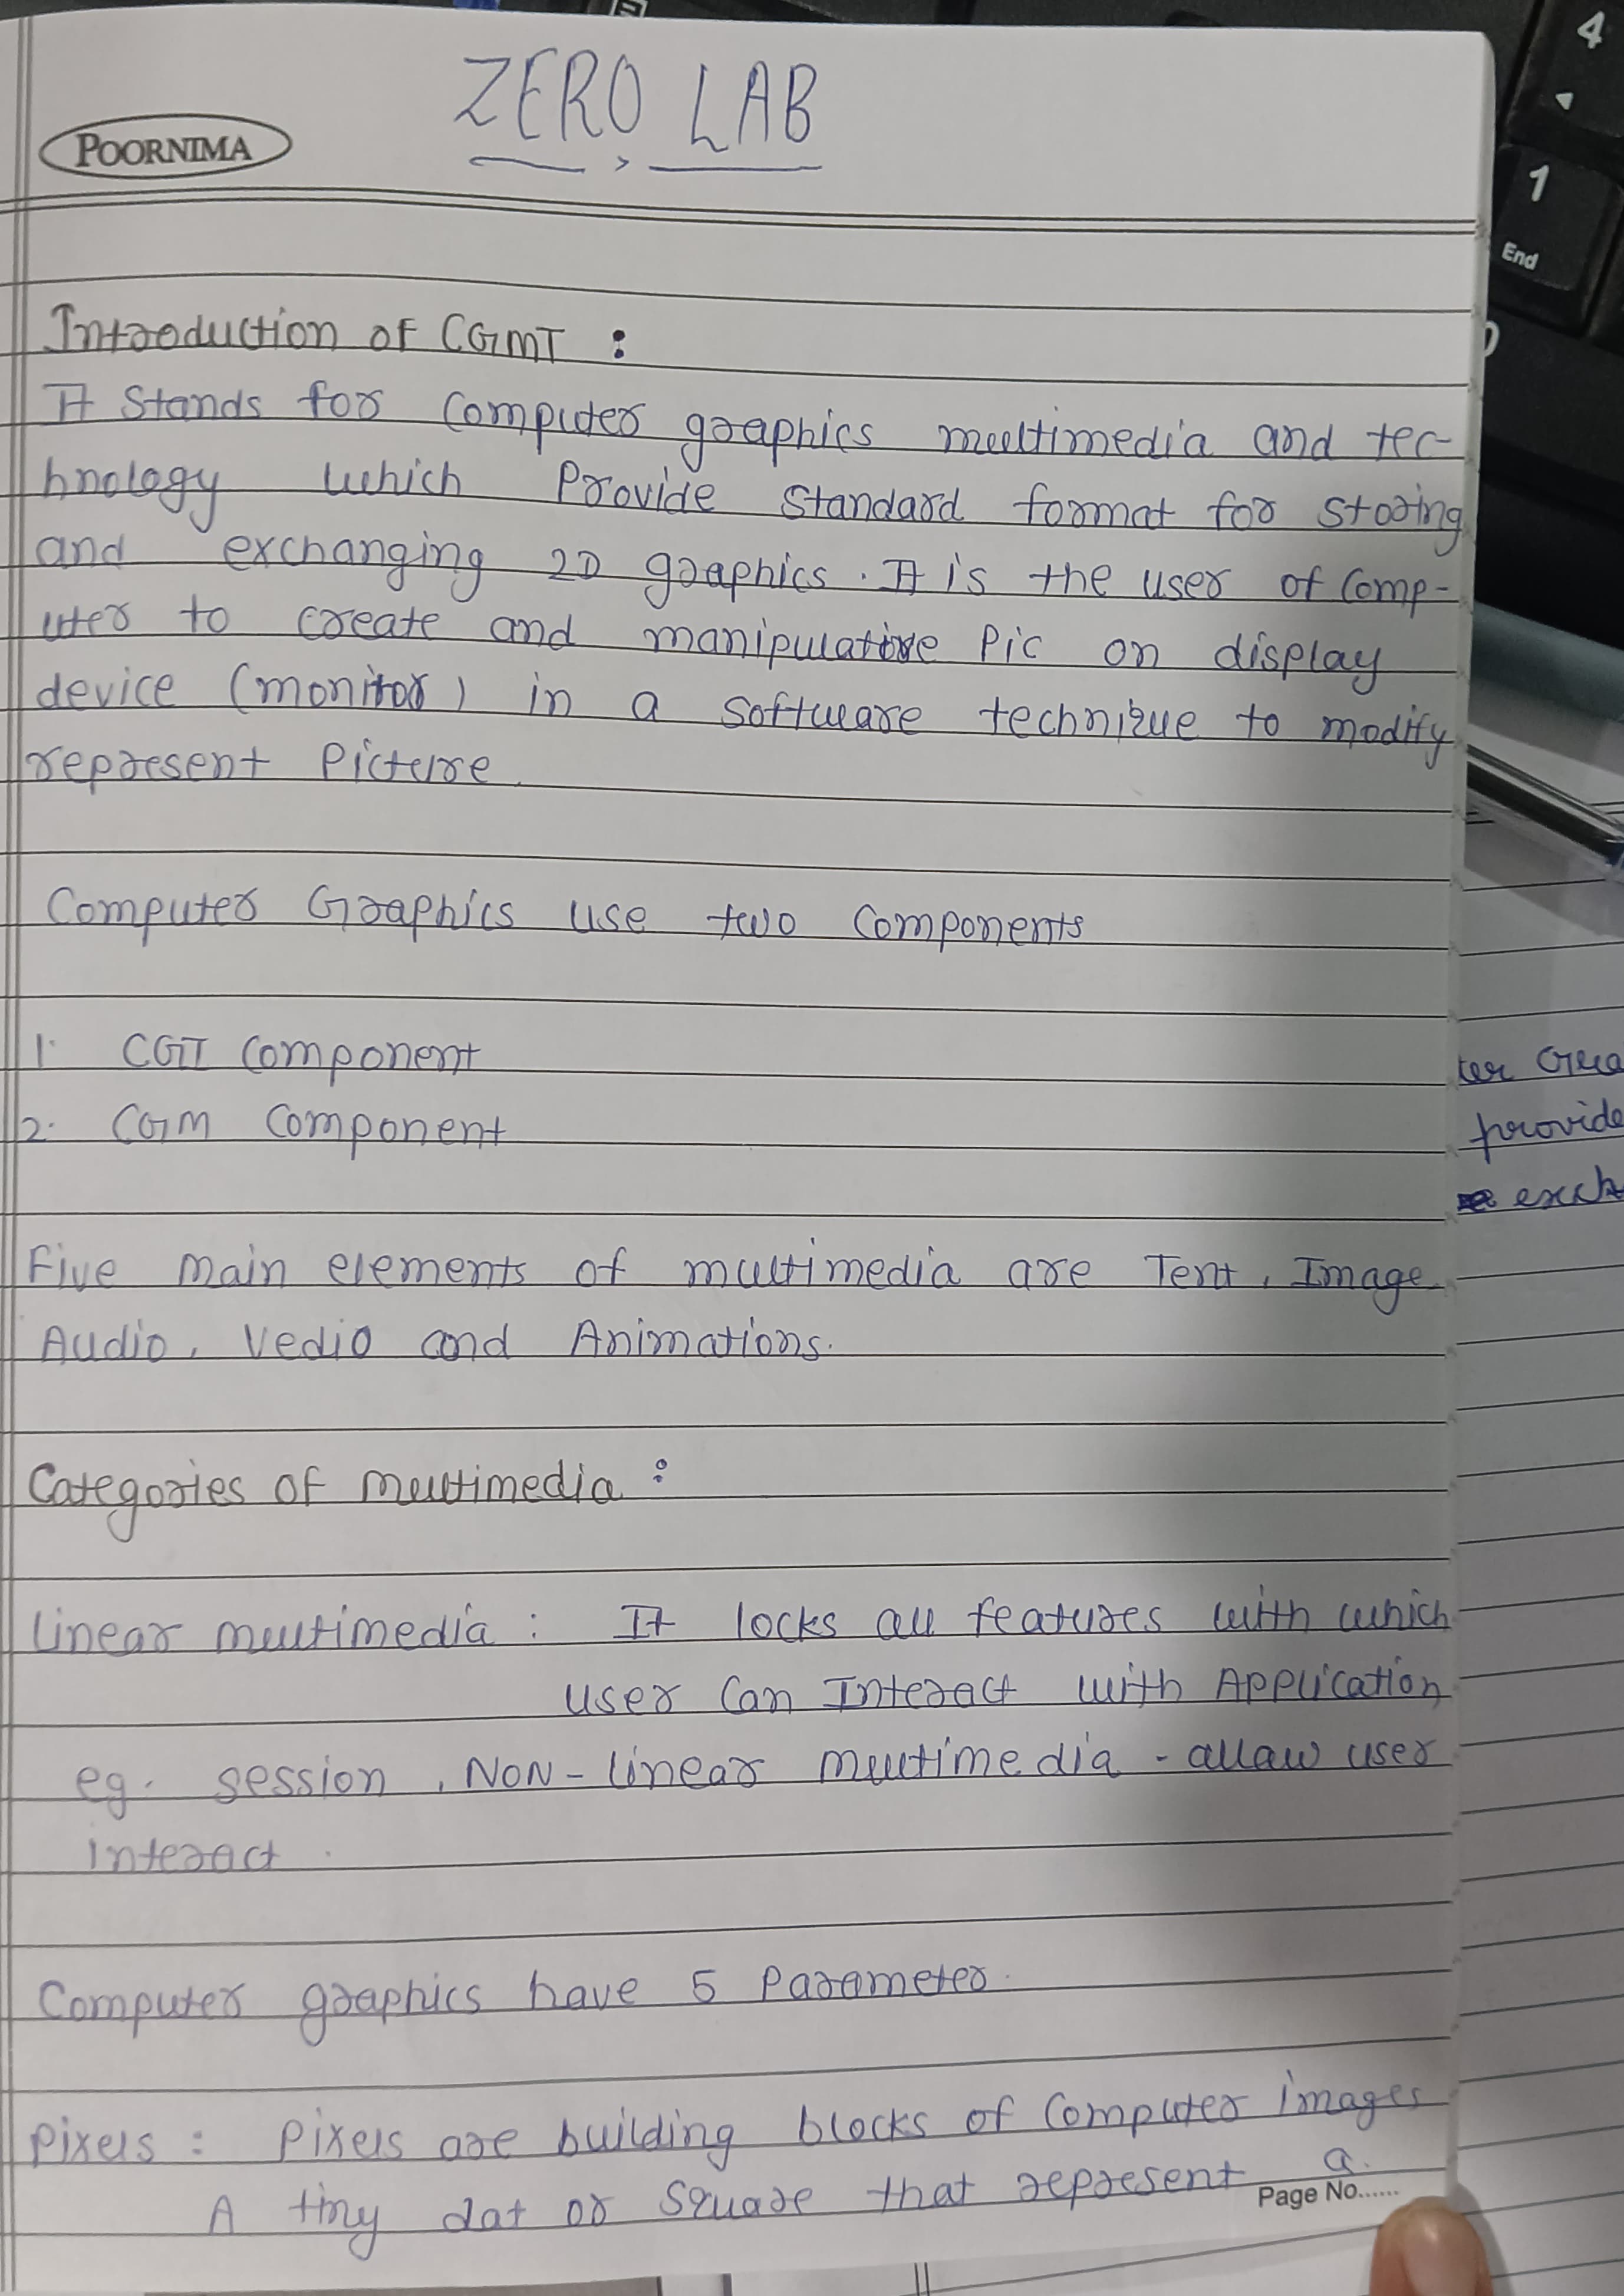 ZERO LAB
POORNIMA
Introduction of CGMT :
It Stands for Computer graphics multimedia and tec-
hnology which Provide Standard format for storing
and exchanging 2D graphics. It is the user of Comp-
uter to create and manipulative Pic on display
device (monitor) in a software technique to modify
represent Picture.
Computer Graphics use two Components
1. CGI Component
2. CGM Component
Five main elements of multimedia are Tent, Image
Audio, Vedio and Animations.
Categories of multimedia :
Linear multimedia : It locks all features with which
user Can Interact with Application
eg. session, Non-linear multimedia - allaw user
interact.
Computer graphics have 5 Parameter.
Pixels : Pixels are building blocks of Computer images
A tiny dat or Square that represent a.
Page No......
4
1
End
provide